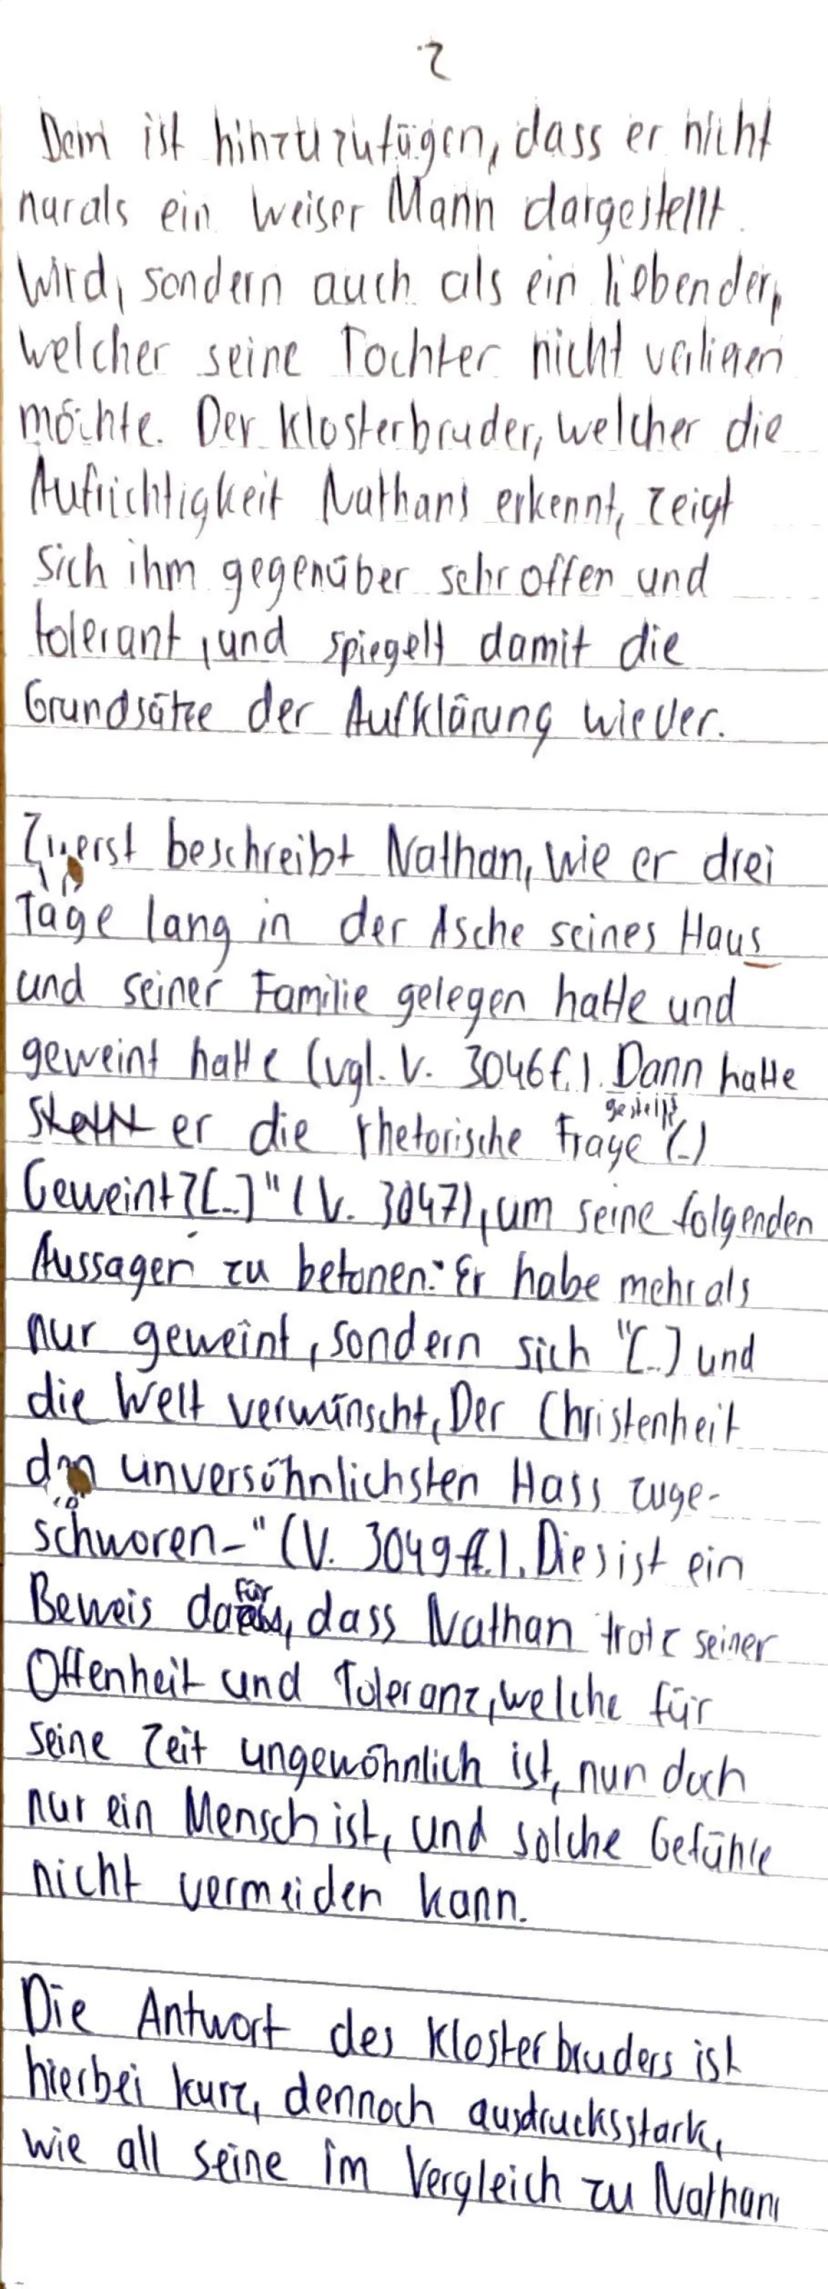 2
Dem ist hinzuzufügen, dass er nicht
nur als ein weiser Mann dargestellt
wird, sondern auch als ein liebender,
welcher seine Tochter nicht verlieren
möchte. Der Klosterbruder, welcher die
Aufrichtigkeit Nathans erkennt, zeigt
sich ihm gegenüber sehr offen und
tolerant, und spiegelt damit die
Grundsätze der Aufklärung wieder.
Zuerst beschreibt Nathan, wie er drei
Tage lang in der Asche seines Haus
und seiner Familie gelegen hatte und
geweint hatte (vgl. V. 3046f.). Dann hatte
stellt er die rhetorische Frage gestellt (..)
Geweint?[..]" (V. 3047), um seine folgenden
Aussagen zu betonen: Er habe mehr als
nur geweint, sondern sich "[..] und
die Welt verwünscht, Der Christenheit
den unversöhnlichsten Hass zuge-
schworen-" (V. 3049 ff.). Dies ist ein
Beweis dafür, dass Nathan trotz seiner
Offenheit und Toleranz, welche für
seine Zeit ungewöhnlich ist, nun doch
nur ein Mensch ist, und solche Gefühle
nicht vermeiden kann.
Die Antwort des Klosterbruders ist
hierbei kurz, dennoch ausdrucksstark,
wie all seine im Vergleich zu Nathans